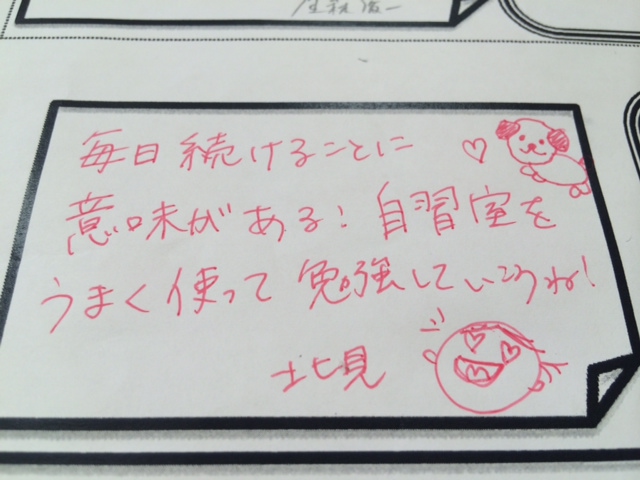 毎日続けることに
意味がある!自習室を
うまく使って勉強していこうね!
北見